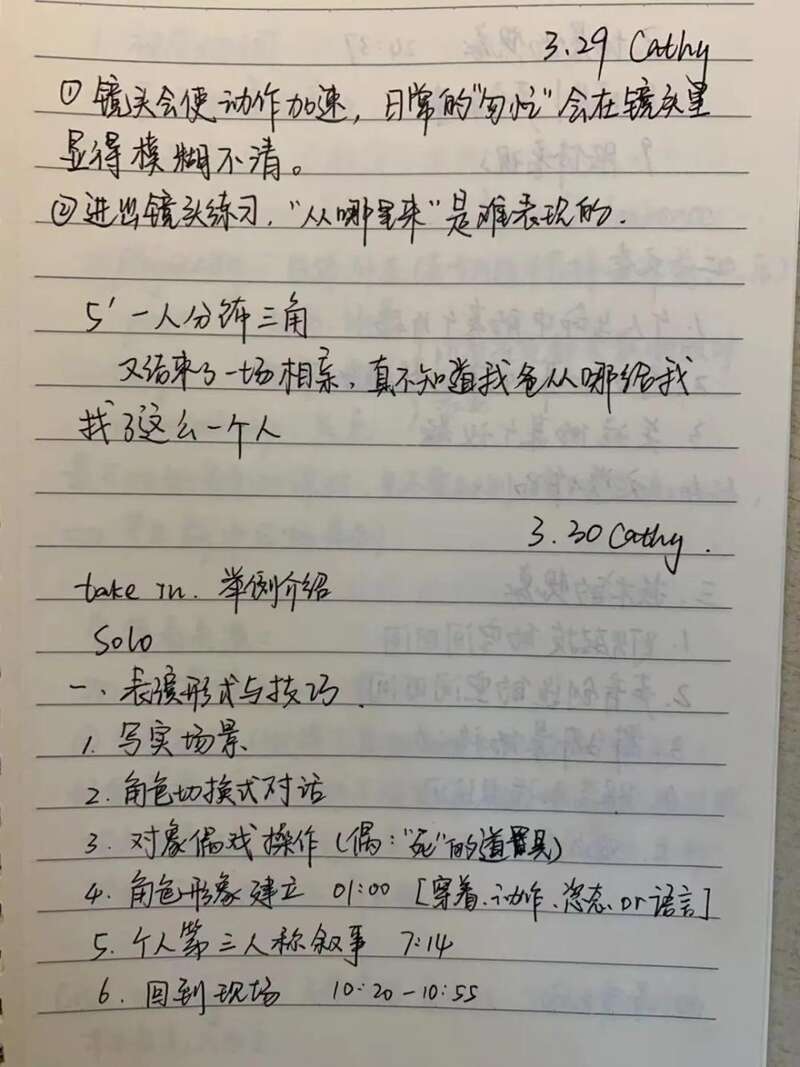 3.29 Cathy
① 镜头会使动作加速，日常的"匆忙"会在镜头里
显得模糊不清。
② 进出镜头练习，"从哪里来"是难表现的.
5' 一人分饰三角
又结束了一场相亲，真不知道我爸从哪给我
找了这么一个人
3.30 Cathy.
take in. 举例介绍
Solo
一、表演形式与技巧.
1. 写实场景
2. 角色切换式对话
3. 对象偶戏操作(偶："死"的道具)
4. 角色形象建立 01:00 [穿着、动作、姿态、or语言]
5. 个人第三人称叙事 7:14
6. 回到现场 10:20-10:55